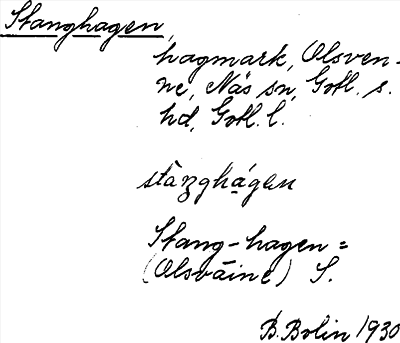 Stanghagen,
hagmark, Olsven-
ne, Näs sn, Gotl. s.
hd, Gotl. l.
stàŋghágen
Stang-hagen =
(Olsväine) S.
B. Bolin 1930